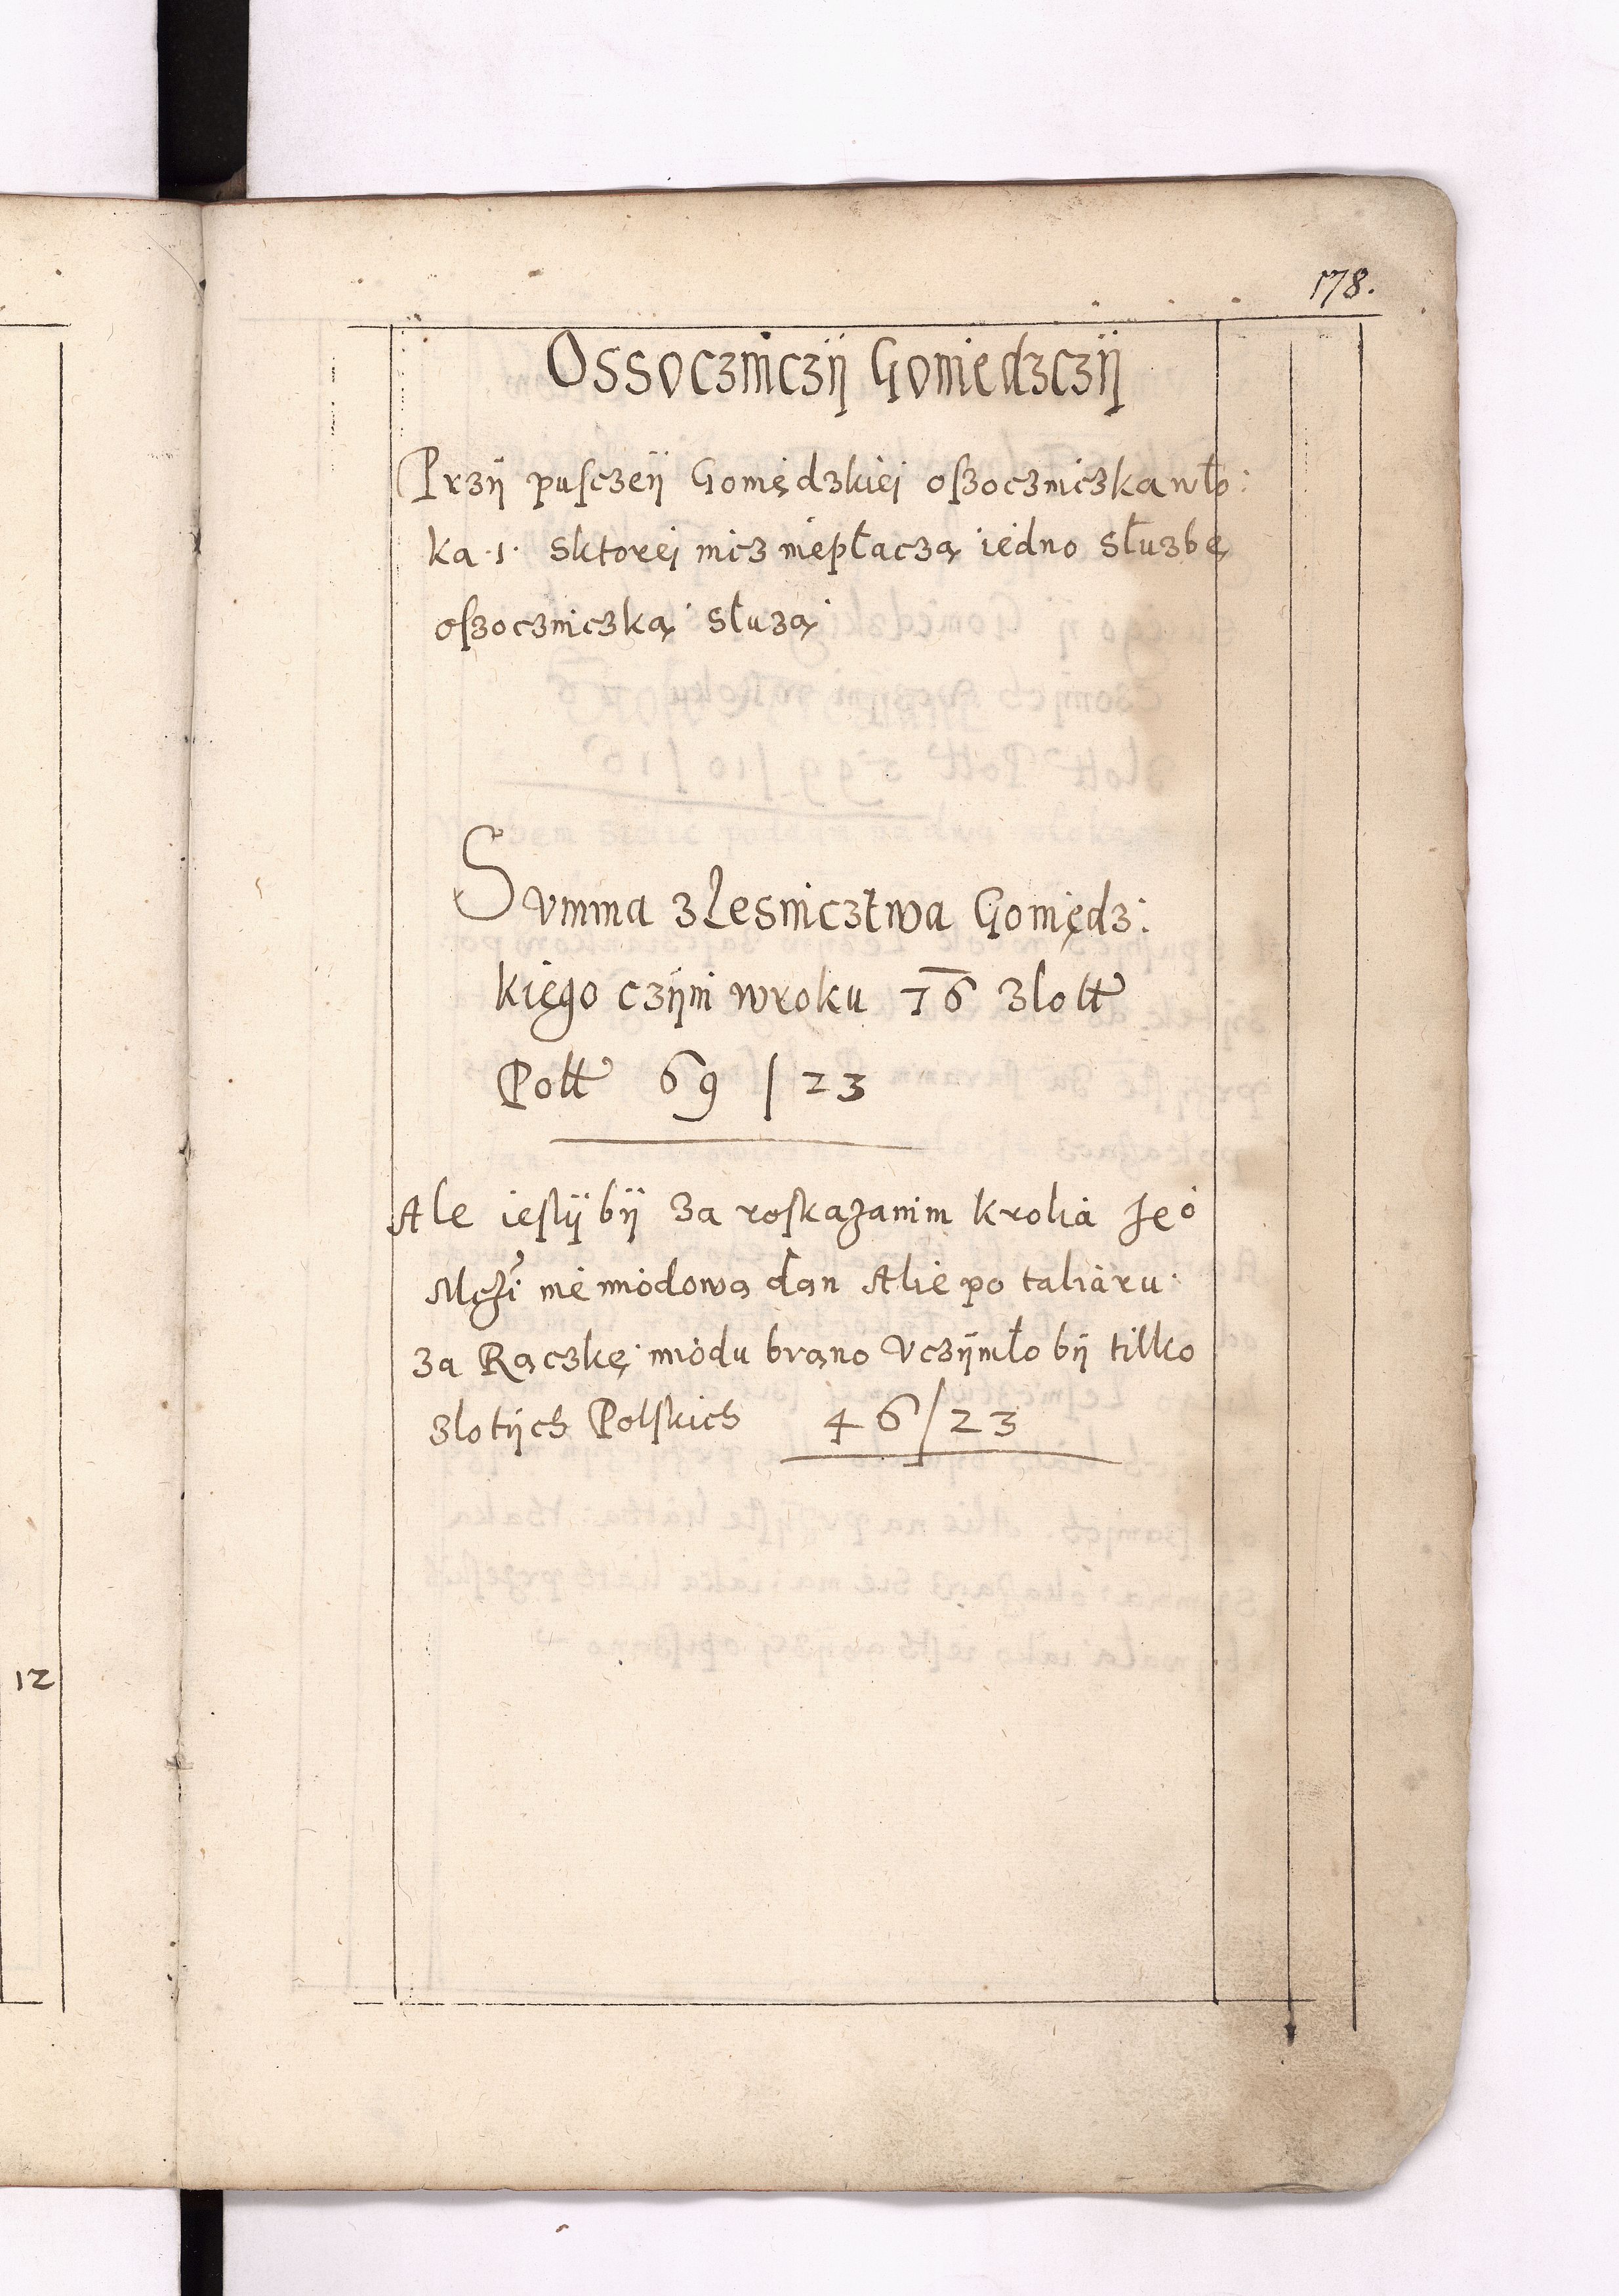 178.
Ossoczniczÿ Goniędzczÿ
Przÿ pusczeÿ Gonię̨dzkiei oszoczniczka wło:
ka .1. sktorei nicz niepłaczą iedno słuzbę
oszoczniczką słuzą
Summa z Lesnicztwa Goniędz:
kiego czÿni w roku 76 zlott
Poltt 69 / 23
Ale ieslÿ bÿ za roskazanim krolia Jeo
Mczi nie miodową dan Alie po taliaru
za Rączkę miodu brano Vczÿniło bÿ tilko
zlotÿch Polskich 46 / 23
12